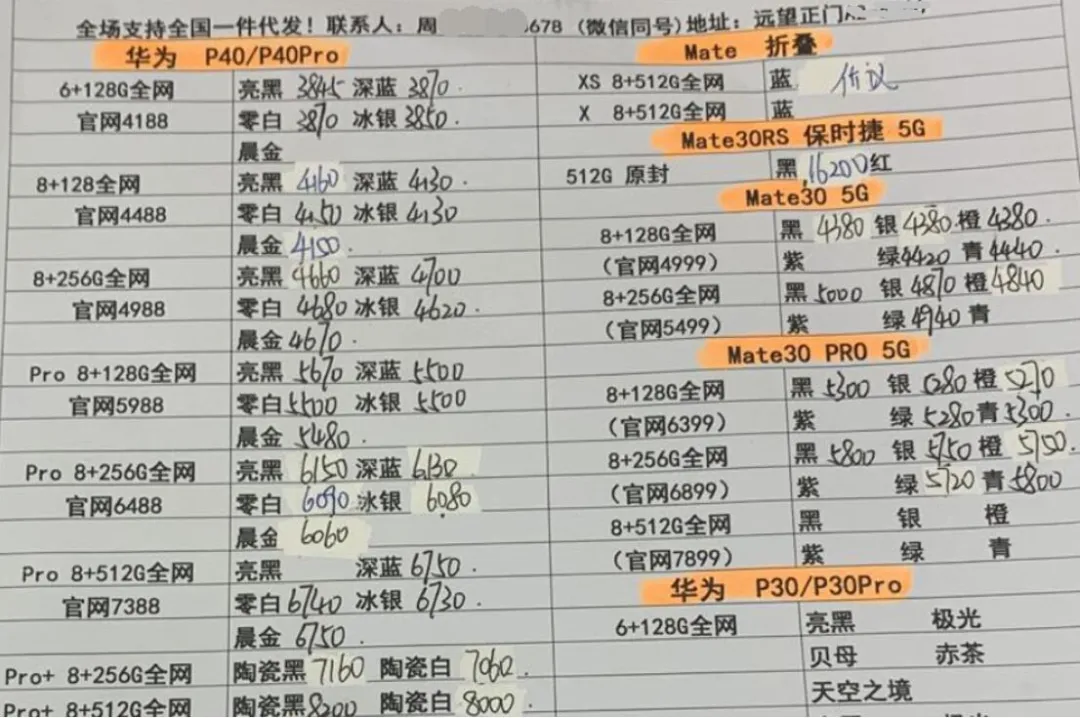 全场支持全国一件代发！联系人：周 678 (微信同号)地址：远望正门
华为 P40/P40Pro
6+128G全网 亮黑 3845 深蓝 3870
官网4188 零白 3870 冰银 3850.
晨金
8+128全网 亮黑 4160 深蓝 4130.
官网4488 零白 4150 冰银 4130
晨金 4150.
8+256G全网 亮黑 4660 深蓝 4700
官网4988 零白 4680 冰银 4620.
晨金 4670.
Pro 8+128G全网 亮黑 5670 深蓝 5500
官网5988 零白 5500 冰银 5500
晨金 5480.
Pro 8+256G全网 亮黑 6150 深蓝 6130
官网6488 零白 6090 冰银 6080
晨金 6060
Pro 8+512G全网 亮黑 深蓝 6750.
官网7388 零白 6740 冰银 6730.
晨金 6750.
Pro+ 8+256G全网 陶瓷黑 7160 陶瓷白 7060.
Pro+ 8+512G全网 陶瓷黑 8200 陶瓷白 8000.
Mate 折叠
XS 8+512G全网 蓝 价议
X 8+512G全网 蓝
Mate30RS 保时捷 5G
512G 原封 黑 16200 红
Mate30 5G
8+128G全网 黑 4380 银 4380 橙 4380.
(官网4999) 紫 绿 4420 青 4440.
8+256G全网 黑 5000 银 4870 橙 4840
(官网5499) 紫 绿 4940 青
Mate30 PRO 5G
8+128G全网 黑 5300 银 5280 橙 5270
(官网6399) 紫 绿 5280 青 5300.
8+256G全网 黑 5800 银 5750 橙 5750.
(官网6899) 紫 绿 5720 青 5800
8+512G全网 黑 银 橙
(官网7899) 紫 绿 青
华为 P30/P30Pro
6+128G全网 亮黑 极光
贝母 赤茶
天空之境